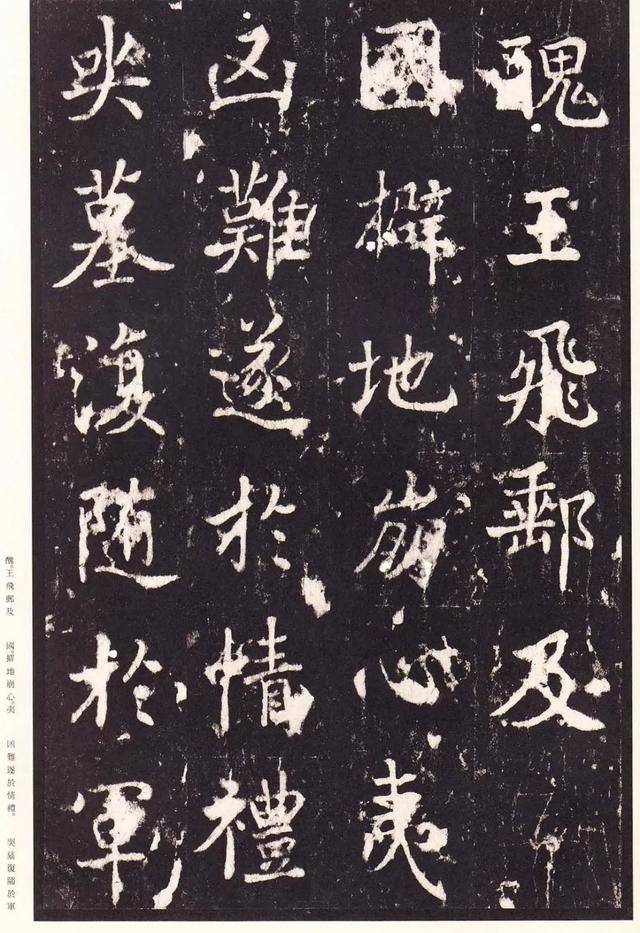 醜王飛郵及
國擗地崩心夷
凶難遂於情禮
哭墓復隨於軍
醜。王飛郵及 國。擗地崩心。夷 凶難遂於情禮。 哭墓復隨於軍